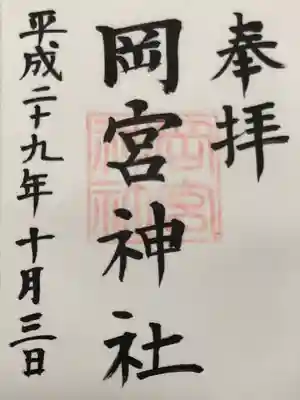 奉拝
岡宮神社
平成二十九年十月三日